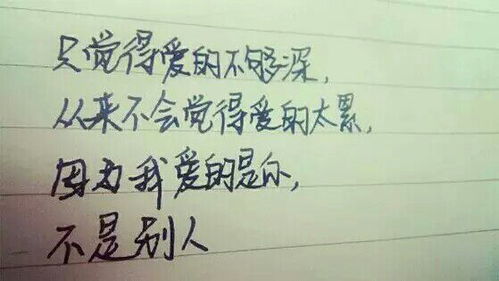 只觉得爱的不够深,
从来不会觉得爱的太累,
因为我爱的是你,
不是别人